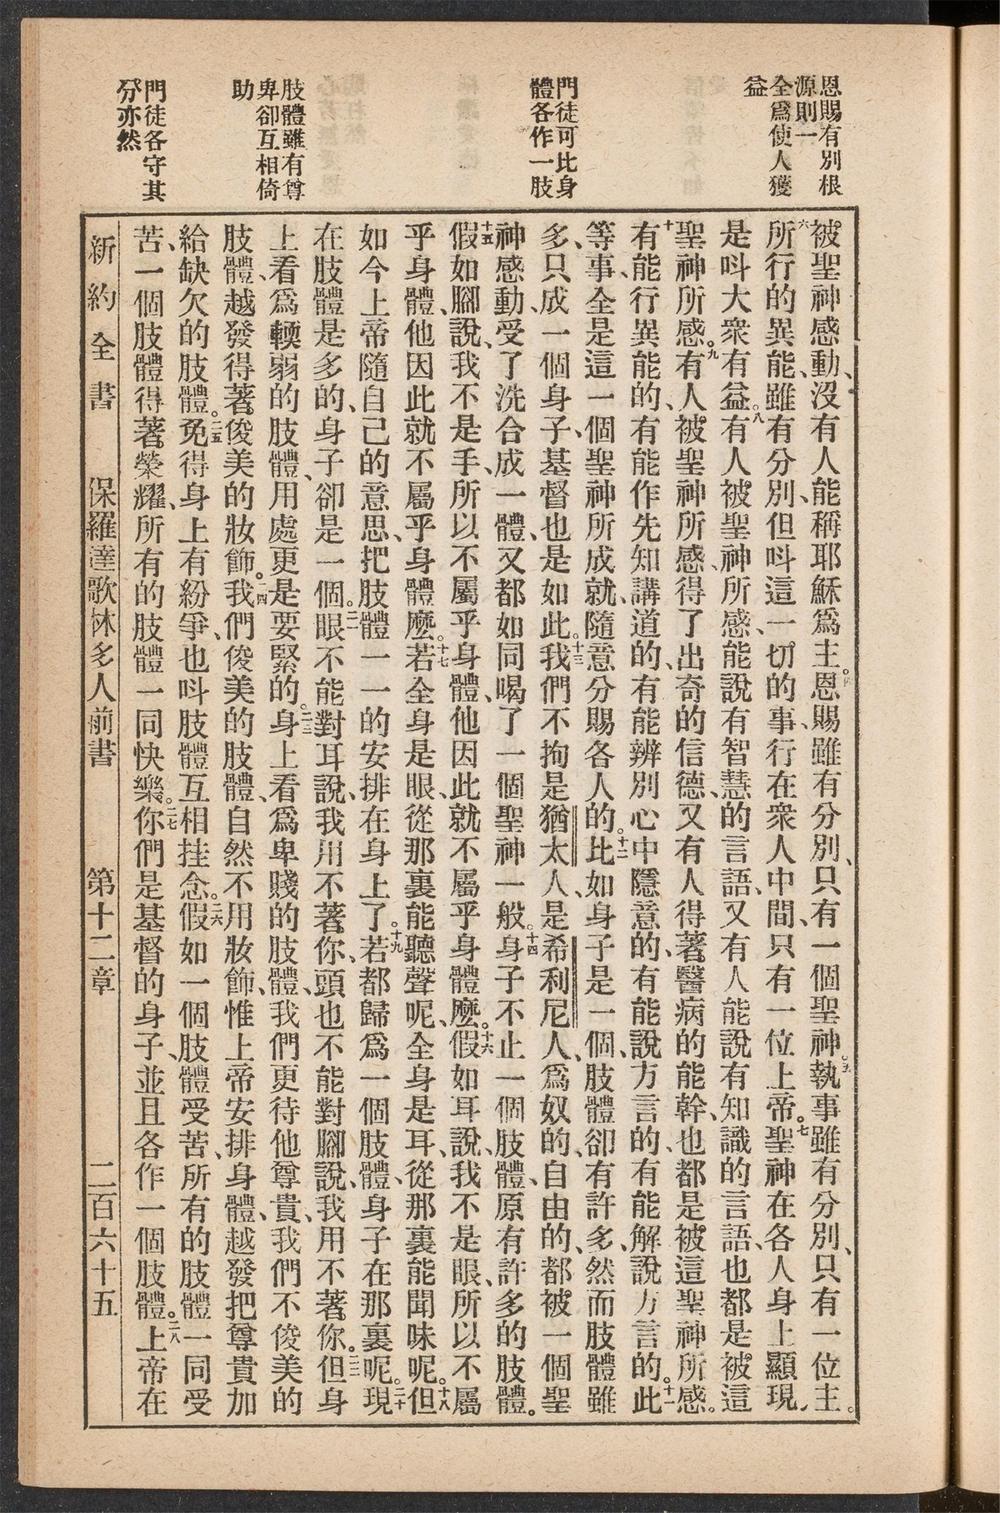 恩賜有別根
源則一
全爲使人獲
益
門徒可比身
體各作一肢
肢體雖有尊
卑卻互相倚
助
門徒各守其
分亦然
被聖神感動、沒有人能稱耶穌爲主。四恩賜雖有分別、只有一個聖神、五執事雖有分別、只有一位主。
六所行的異能、雖有分別、但呌這一切的事、行在衆人中間、只有一位上帝。七聖神在各人身上顯現、
是呌大衆有益。八有人被聖神所感、能說有智慧的言語、又有人能說有知識的言語、也都是被這
聖神所感。九有人被聖神所感、得了出奇的信德、又有人得著醫病的能幹、也都是被這聖神所感。
十有能行異能的、有能作先知講道的、有能辨別心中隱意的、有能說方言的、有能解說方言的。十一此
等事、全是這一個聖神所成就、隨意分賜各人的。十二比如身子是一個、肢體卻有許多、然而肢體雖
多、只成一個身子、基督也是如此。十三我們不拘是猶太人、是希利尼人、爲奴的、自由的、都被一個聖
神感動受了洗合成一體、又都如同喝了一個聖神一般。十四身子不止一個肢體、原有許多的肢體。
十五假如腳說、我不是手、所以不屬乎身體、他因此就不屬乎身體麽。十六假如耳說、我不是眼、所以不屬
乎身體、他因此就不屬乎身體麽。十七若全身是眼、從那裏能聽聲呢、全身是耳、從那裏能聞味呢。十八但
如今上帝隨自己的意思、把肢體一一的安排在身上了。十九若都歸爲一個肢體、身子在那裏呢。二十現
在肢體是多的、身子卻是一個。二一眼不能對耳說、我用不著你、頭也不能對腳說、我用不著你。二二但身
上看爲輭弱的肢體、用處更是要緊的。二三身上看爲卑賤的肢體、我們更待他尊貴、我們不俊美的
肢體、越發得著俊美的妝飾。二四我們俊美的肢體、自然不用妝飾、惟上帝安排身體、越發把尊貴加
給缺欠的肢體。二五免得身上有紛爭、也呌肢體互相挂念。二六假如一個肢體受苦、所有的肢體一同受
苦、一個肢體得著榮耀、所有的肢體一同快樂。二七你們是基督的身子、並且各作一個肢體。二八上帝在
新約全書 保羅達歌林多人前書 第十二章 二百六十五